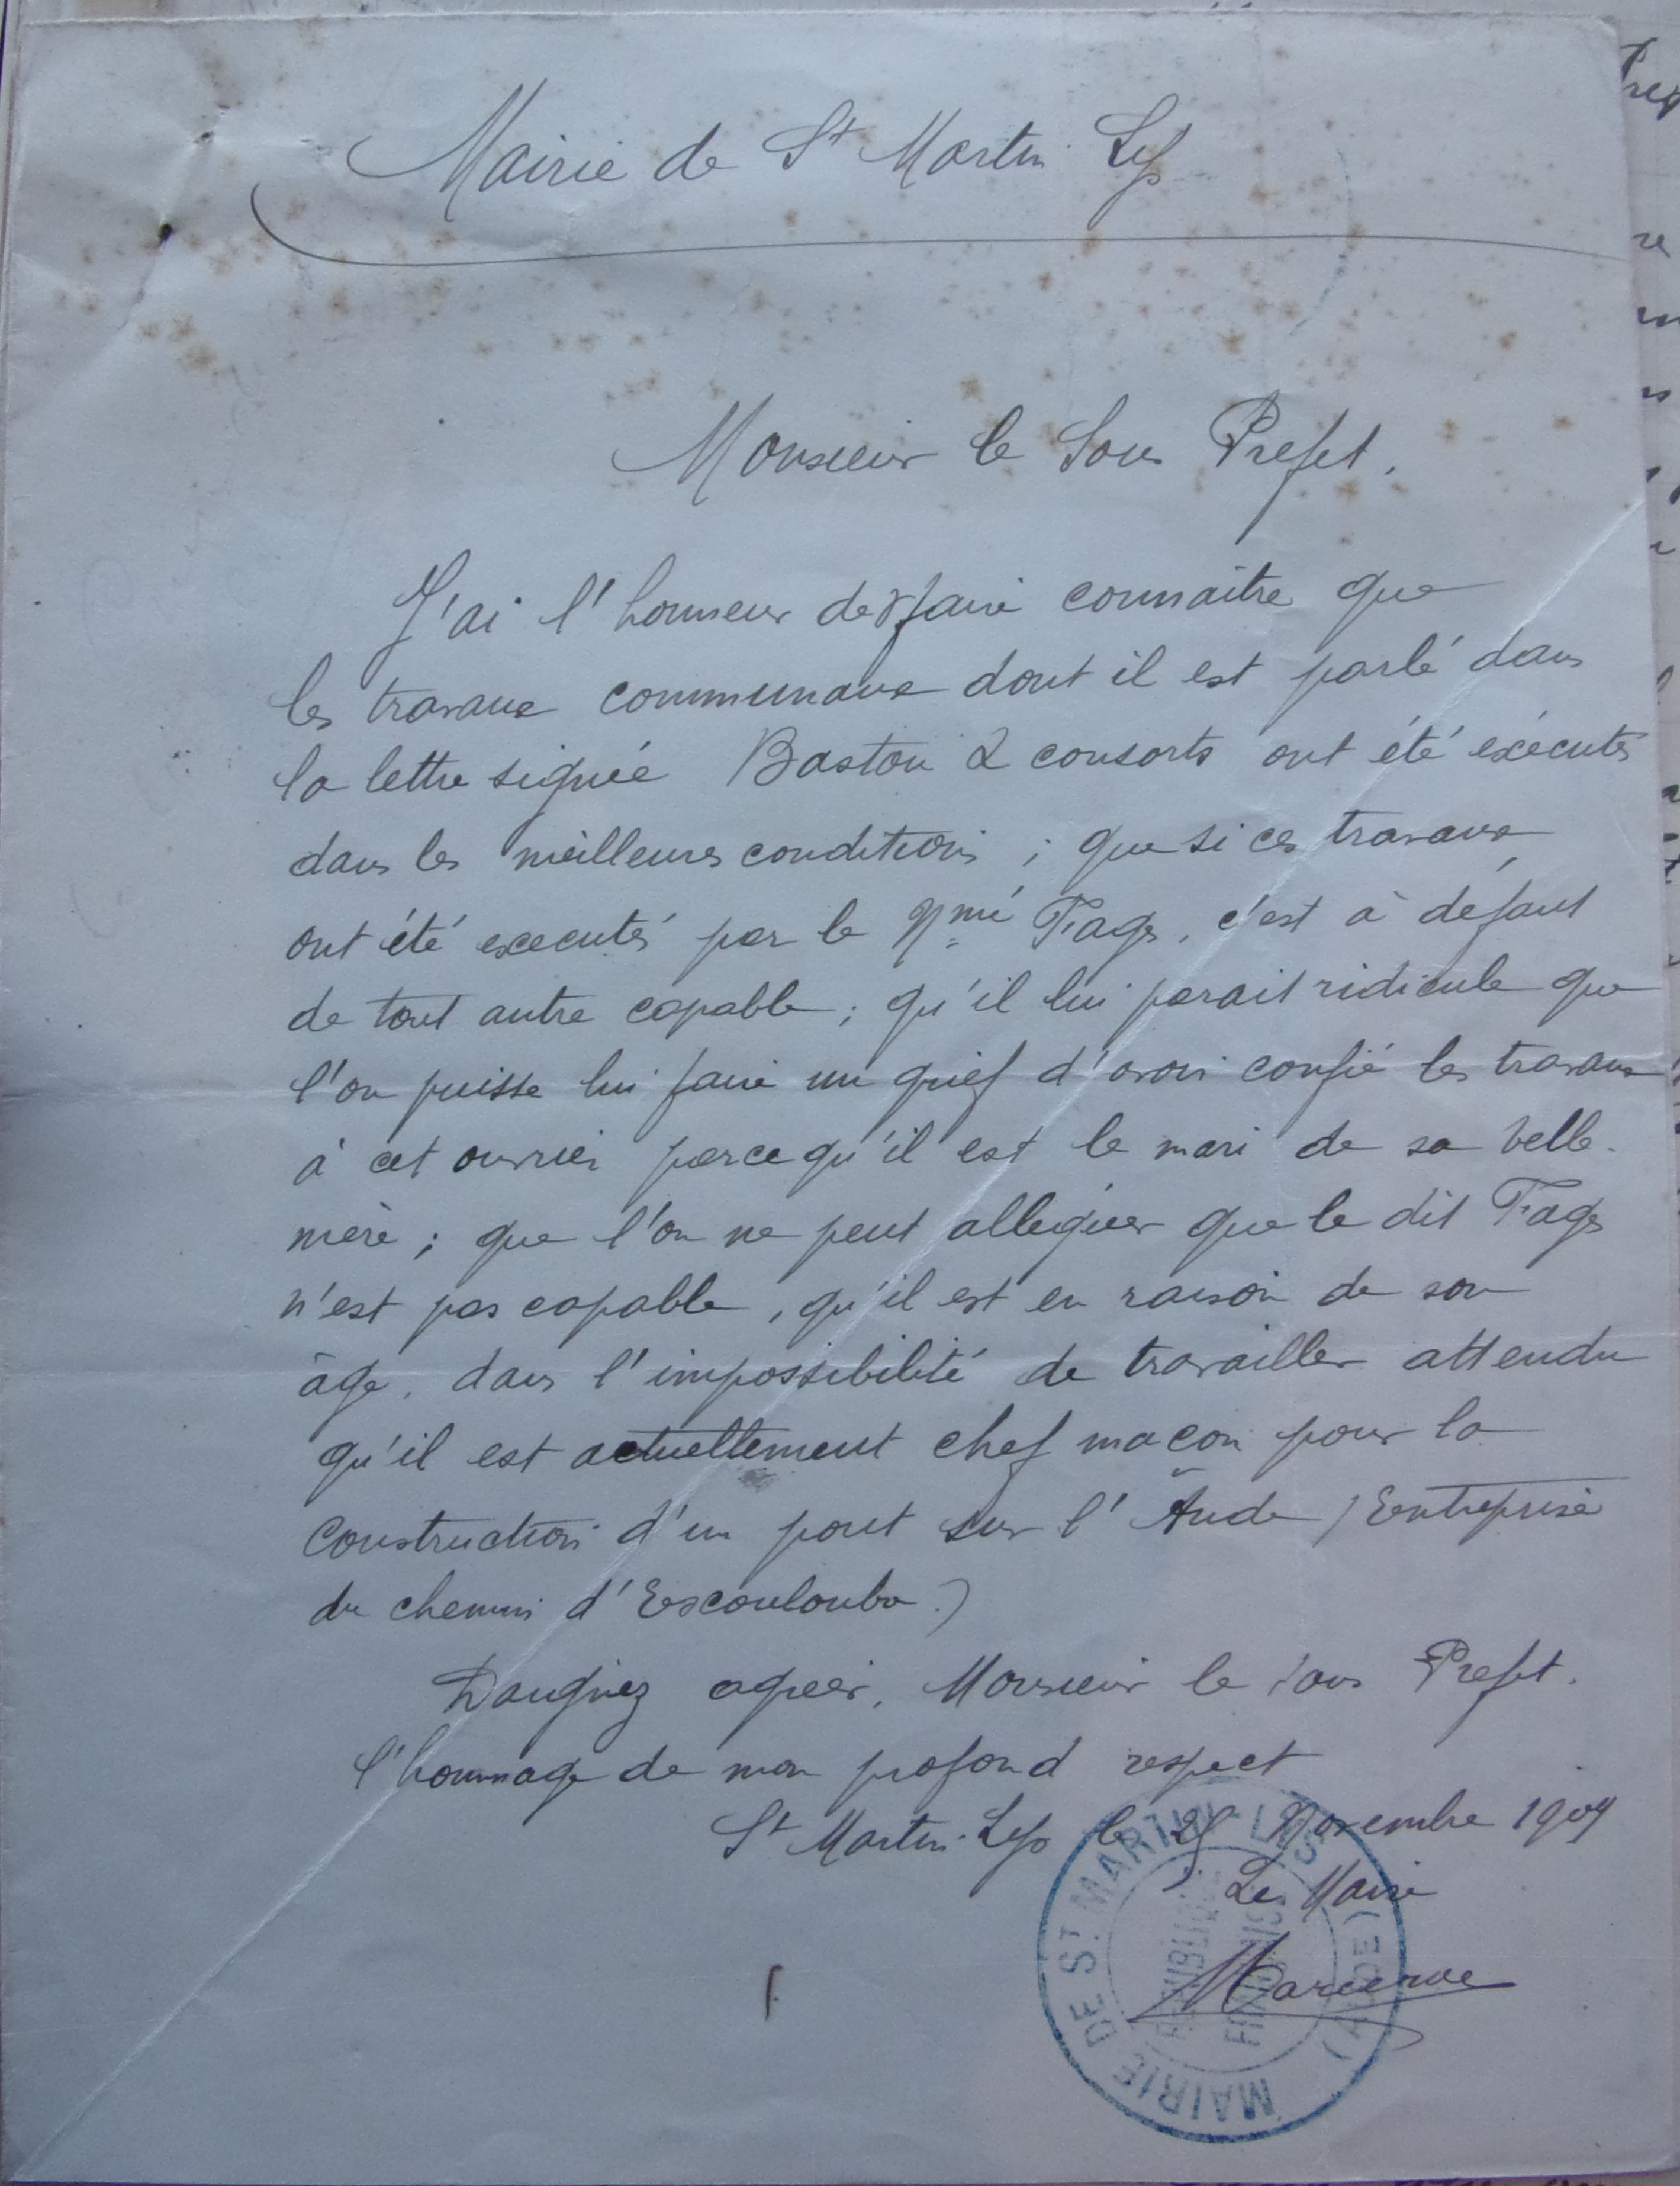 Mairie de St Martin Lys
Monsieur le Sous Prefet.
J'ai l'honneur de faire connaitre que
les travaux communaux dont il est parlé dans
la lettre signée Baston & consorts ont été éxécutés
dans les meilleures conditions ; que si ces travaux
ont été executés par le Nmé Fages, c'est à défaut
de tout autre capable ; qu'il lui parait ridicule que
l'on puisse lui faire un grief d'avoir confié les travaux
à cet ouvrier parcequ'il est le mari de sa belle-
mère ; que l'on ne peut alléguer que le dit Fages
n'est pas capable, qu'il est en raison de son
âge, dans l'impossibilité de travailler attendu
qu'il est actuellement chef maçon pour la
Construction d'un pont sur l'Aude (Entreprise
du chemin d'Escouloubre.)
Daignez agréer, Monsieur le Sous Prefet.
l'hommage de mon profond respect
St Martin-Lys le 25 Novembre 1909
Le Maire
MAIRIE DE ST MARTIN-LYS (AUDE)
REPUBLIQUE FRANÇAISE